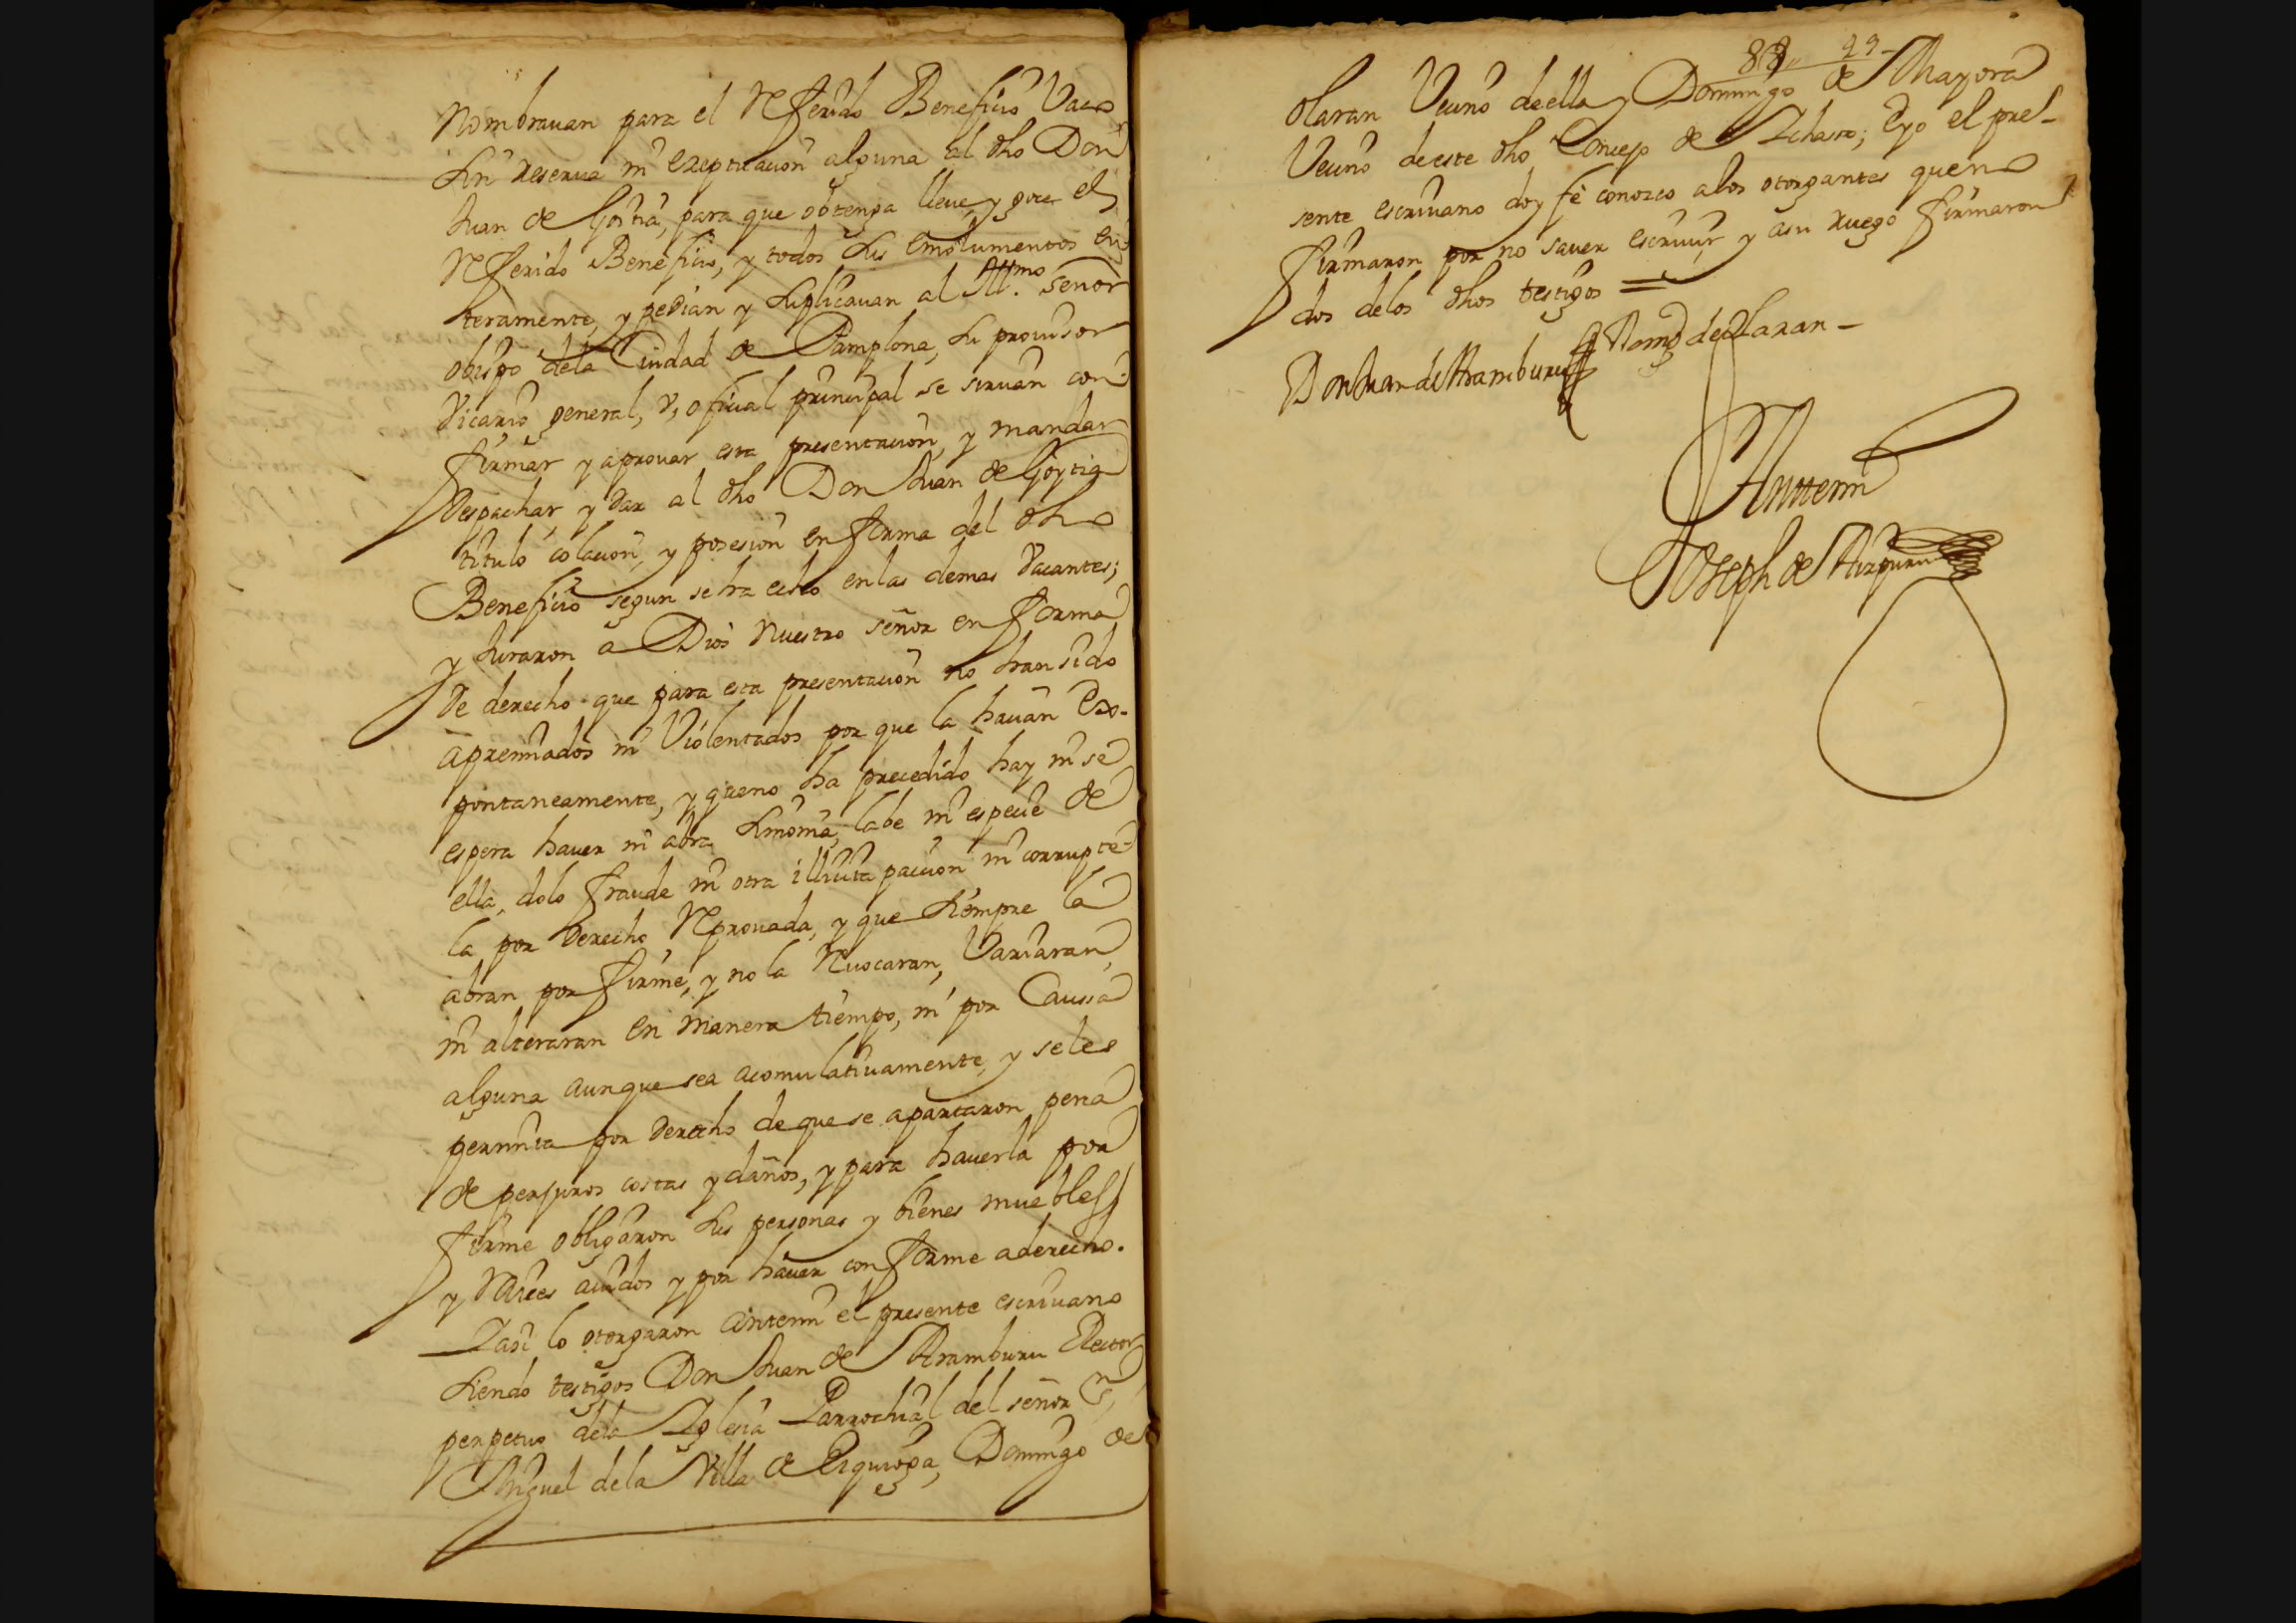 Nombrauan para el Referido Beneficio Vaco
sin reserua ni exeptuacion alguna al dho Don
Juan de Goitia, para que obtenga lleue, y goce el
Referido Beneficio, y todos sus emolumentos en-
teramente, y pedian y suplicauan al Illmo. señor
obispo dela Ciudad de Pamplona, su prouisor
Vicario general, v, oficial principal se siruan con-
firmar y aprouar esta presentacion, y mandar
despachar, y dar al dho Don Juan de Goytia
titulo colacion, y posesion en forma del dho
Beneficio segun se ha echo en las demas vacantes;
y Juraron a Dios Nuestro señor en forma
de derecho que para esta presentacion no han sido
apremiados ni Violentados por que la hacian Ex-
pontaneamente, y queno ha precedido hay ni se
espera hauer ni abra simonia, labe ni especie de
ella, dolo fraude ni otra illicita paccion ni corrupte-
la por derecho Reprouada, y que siempre la
abran por firme, y no la Reuocaran, Variaran,
ni alteraran en manera tiempo, ni por Caussa
alguna aunque sea acomulatiuamente, y seles
permita por derecho de que se apartaron pena
de perjuros costas y daños, y para hauerla por
firme obligaron sus personas y bienes muebles
y Raices auidos y por hauer conforme aderecho.
Iasi lo otorgaron antemi el presente escriuano
siendo testigos Don Juan de Aramburu Rector
perpetuo dela Iglesia Parrochial del señor Sn
Miguel dela Villa de Ezquioga, Domingo de
88 99
Olaran Vecino de ella y Domingo de Mayora
Vecino de este dho Concejo de Ichaso; Eyo el pre-
sente escriuano doy fè conozco alos otorgantes queno
firmaron por no sauer escriuir, y asu ruego firmaron
dos delos dhos testigos =
Don Juan de Aramburu Domo de Olaran -
Anttemi
Joseph de Aizpuru